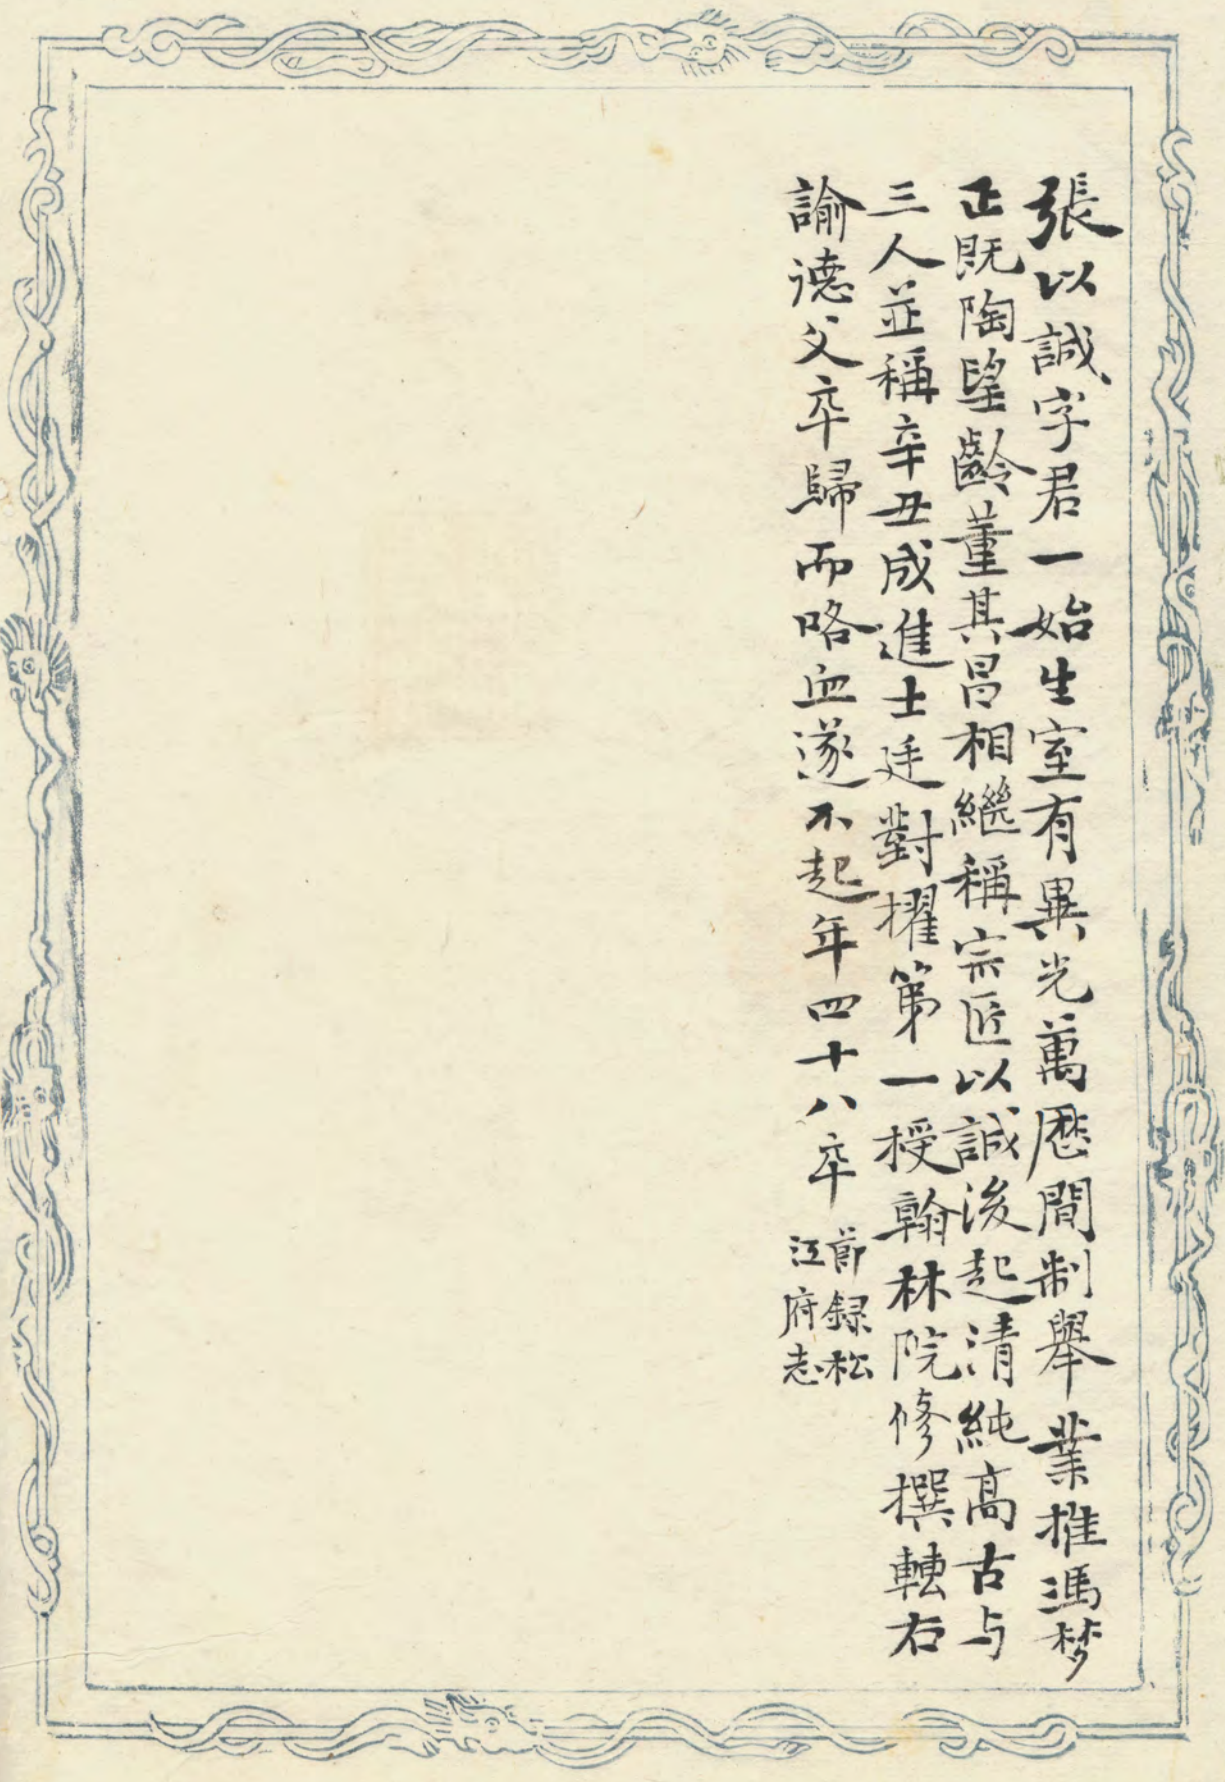 張以誠字君一始生室有異光萬厯間制舉業推馮梦
正既陶望齡董其昌相繼稱宗匠以誠後起清純高古与
三人並稱辛丑成進士廷對擢第一授翰林院修撰轉右
諭德父卒歸而咯血遂不起年四十八卒
節録松
江府志